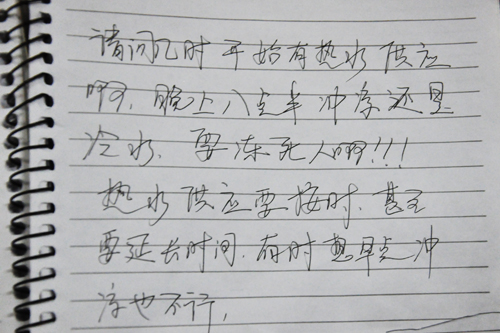 请问几时开始有热水供应
啊，晚上八点半冲凉还是
冷水，要冻死人啊!!!
热水供应要按时，甚至
要延长时间，有时想早点冲
凉也不行，